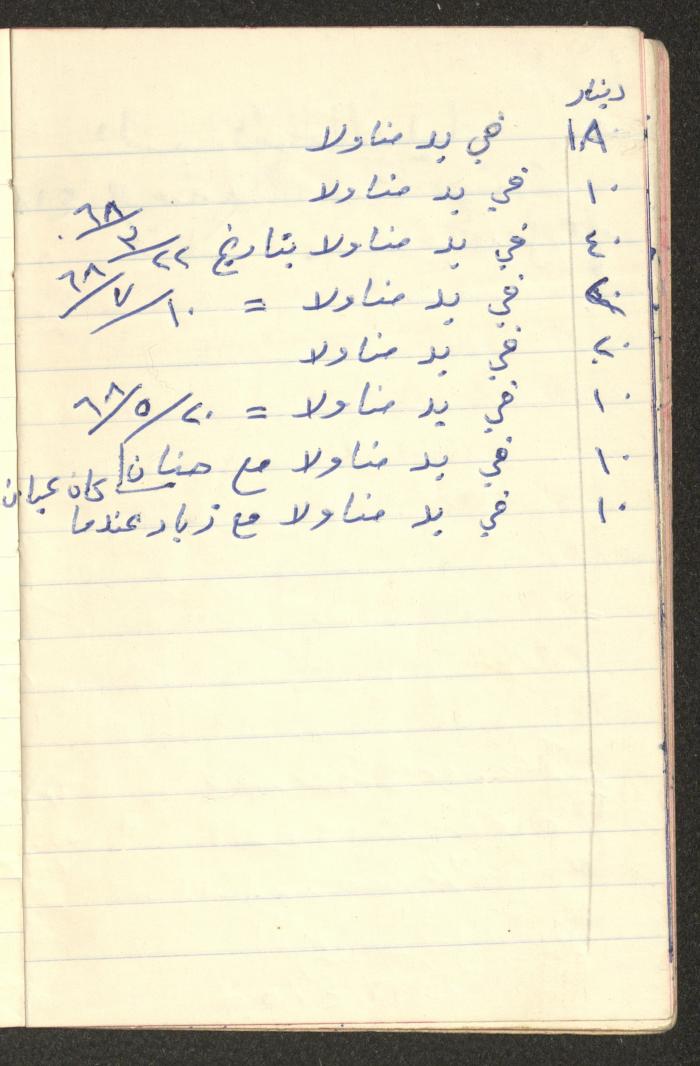 دينار
١٨ في يد مناولا
١٠ في يد مناولا
٤٠ في يد مناولا بتاريخ ٢٢/٣/٦٨
في يد مناولا = ١٠/٧/٦٨
٢٠ في يد مناولا
١٠ في يد مناولا = ٢٠/٥/٦٨
١٠ في يد مناولا مع حنان
١٠ في يد مناولا مع زياد عندما كان